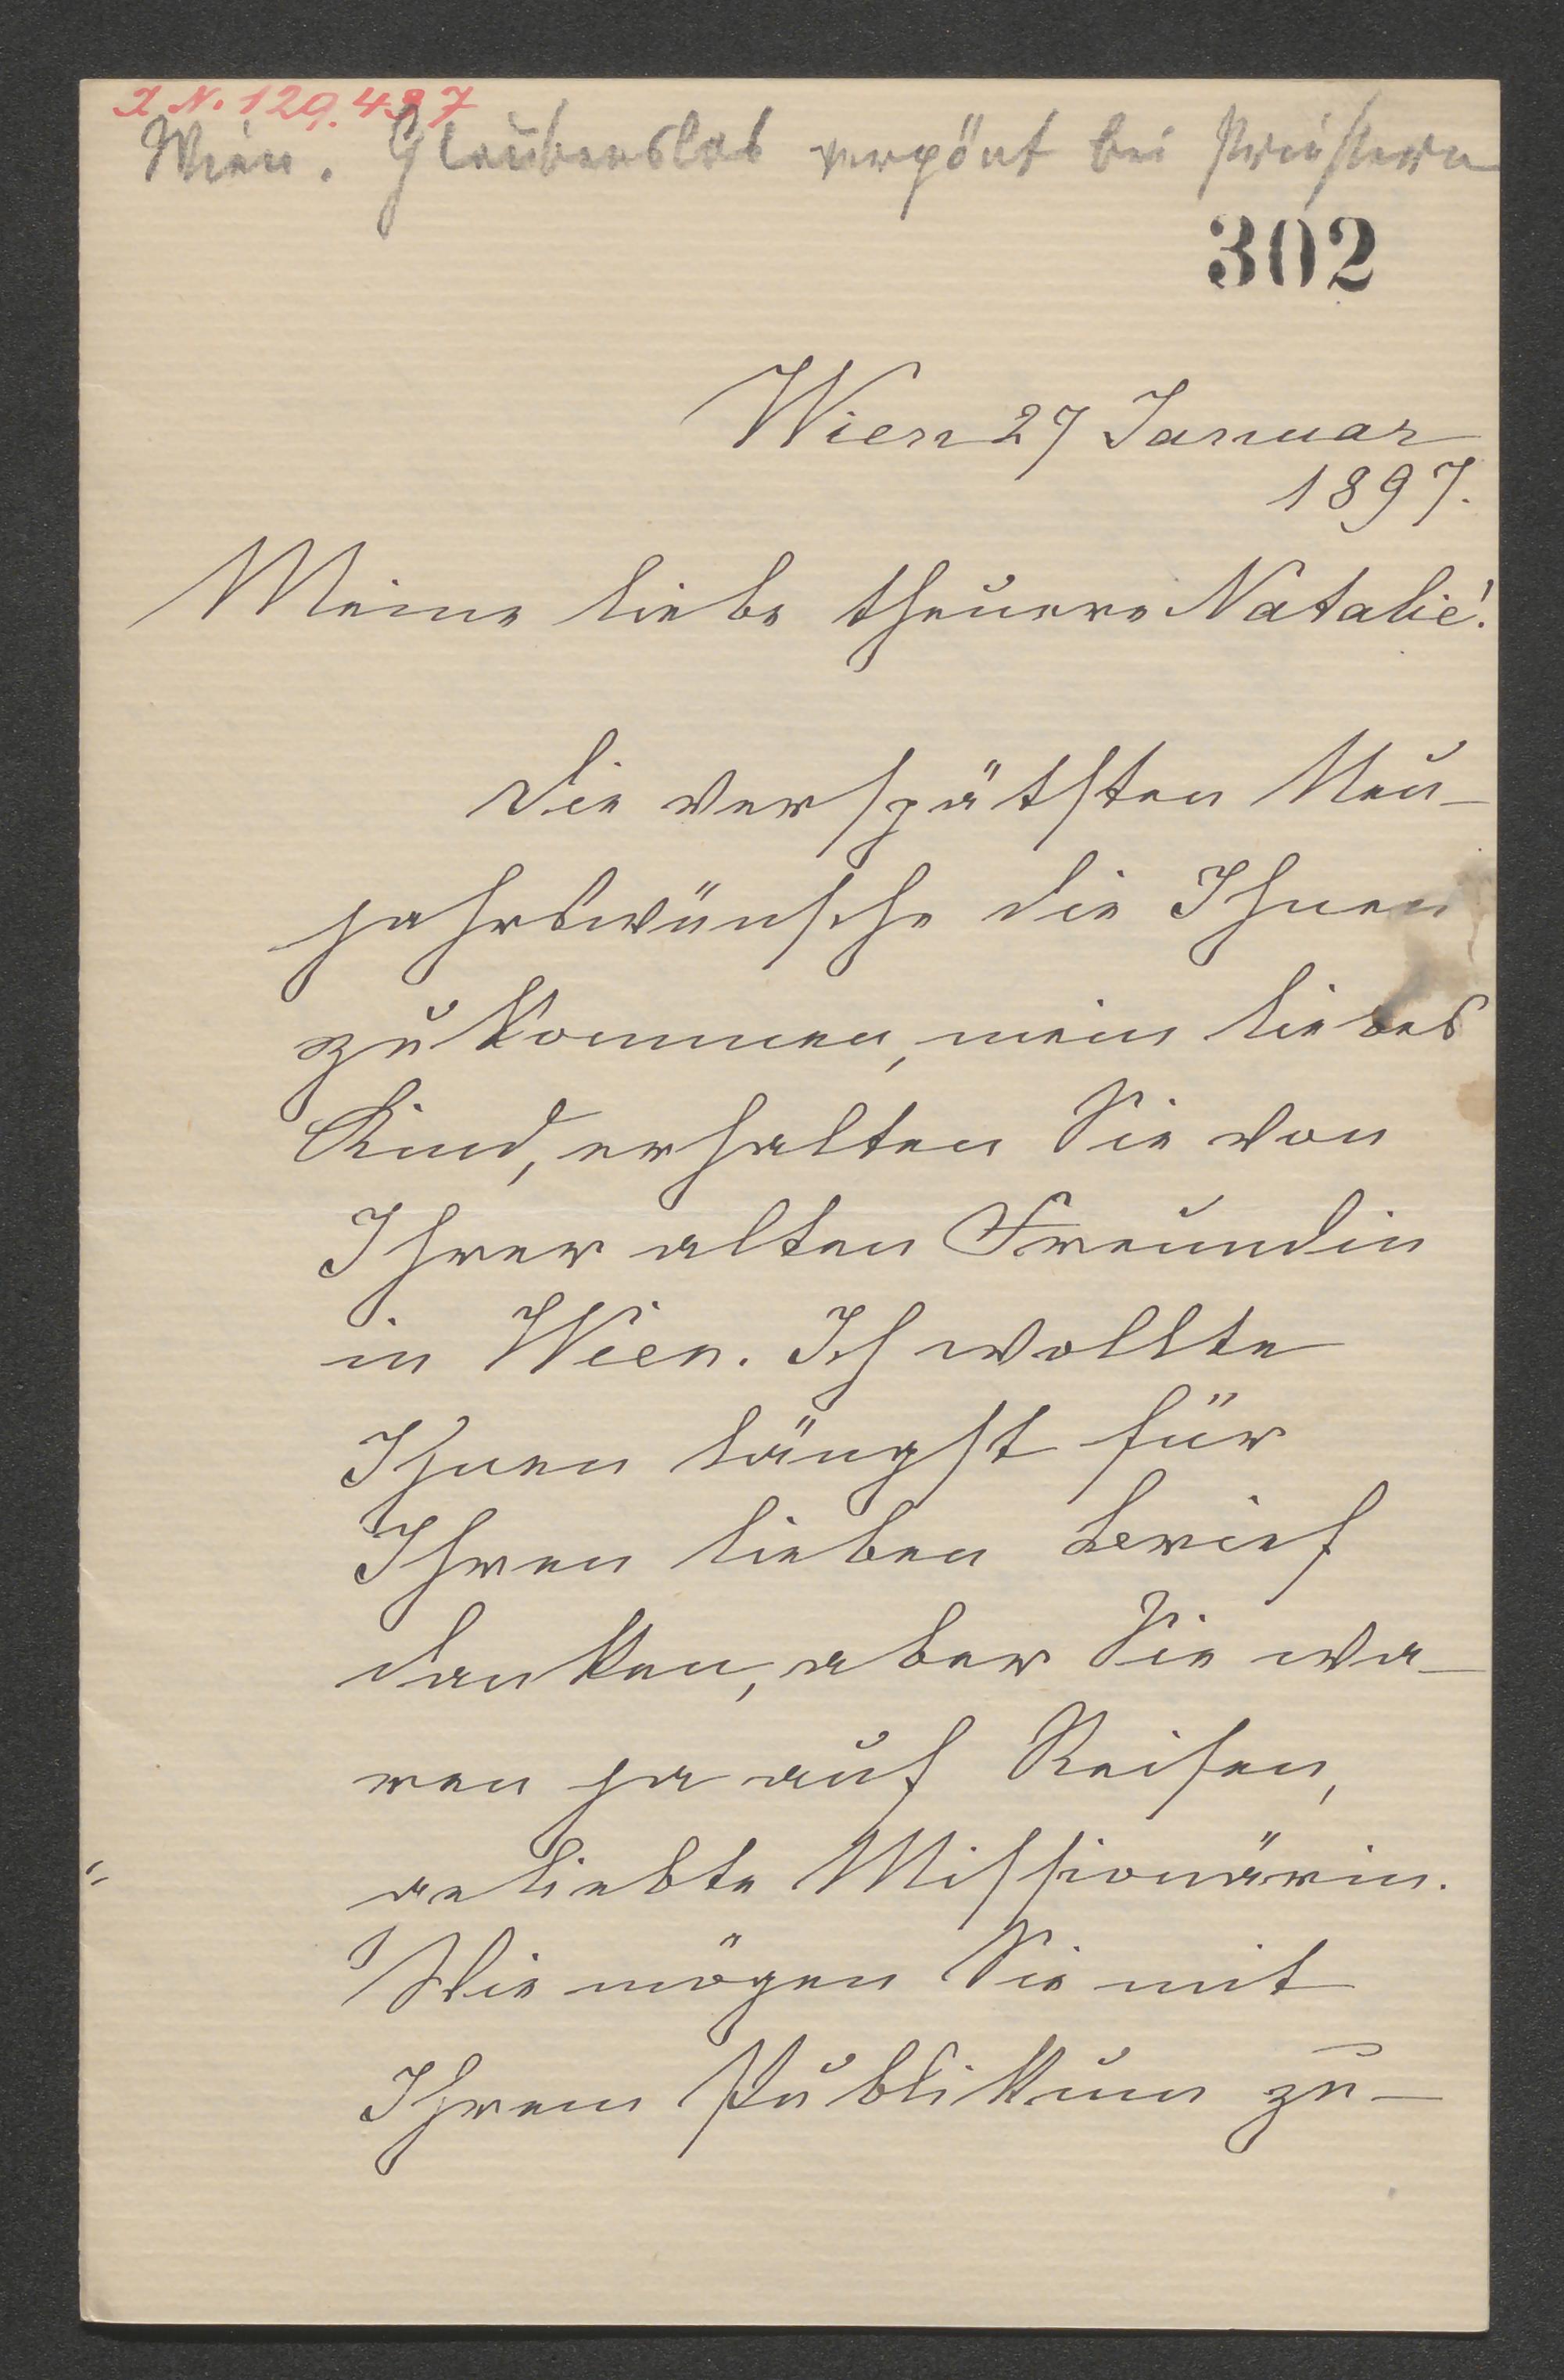 I. N. 129.487
Wien. Glaubenslos verpönt bei Priestern
302
Wien 27 Januar
1897.
Meine liebe theuere Natalie!
die verspätsten Neu-
jahrswünsche die Ihnen
zukommen, mein liebes
Kind, erhalten Sie von
Ihrer alten Freundin
in Wien. Ich wollte
Ihnen längst für
Ihren lieben Brief
danken, aber Sie wa-
ren ja auf Reisen,
geliebte Missionärin.
Wie mögen Sie mit
Ihrem Publikum zu-